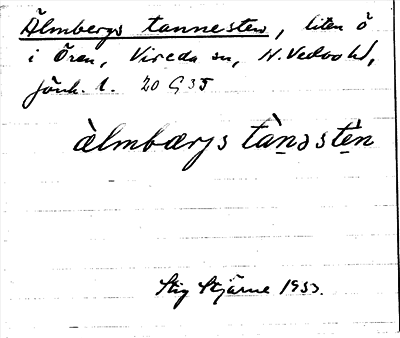 Älmbergs tannesten, liten ö
i Ören, Vireda sn, N. Vedbo hd,
Jönk. l. 20 G 35
àlmbærjs tàn̲ə sté̲n
Stig Stjärne 1933.